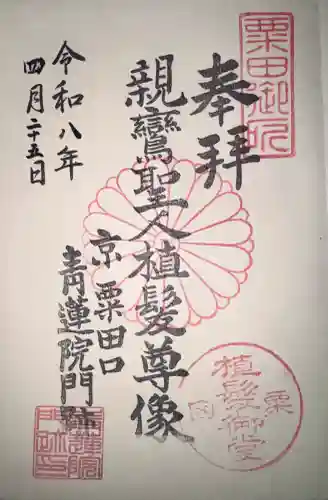 粟田御所
奉拝
親鸞聖人植髪尊像
京粟田口
青蓮院門跡
令和八年
四月二十五日
植髪御堂
粟
青蓮院
門跡印